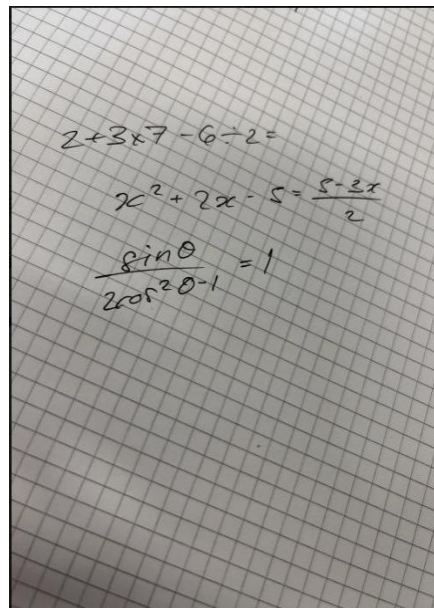 2+3×7-6÷2=
x² + 2x - 5 = (5-3x)/2
sinθ/(2cos²θ-1) = 1